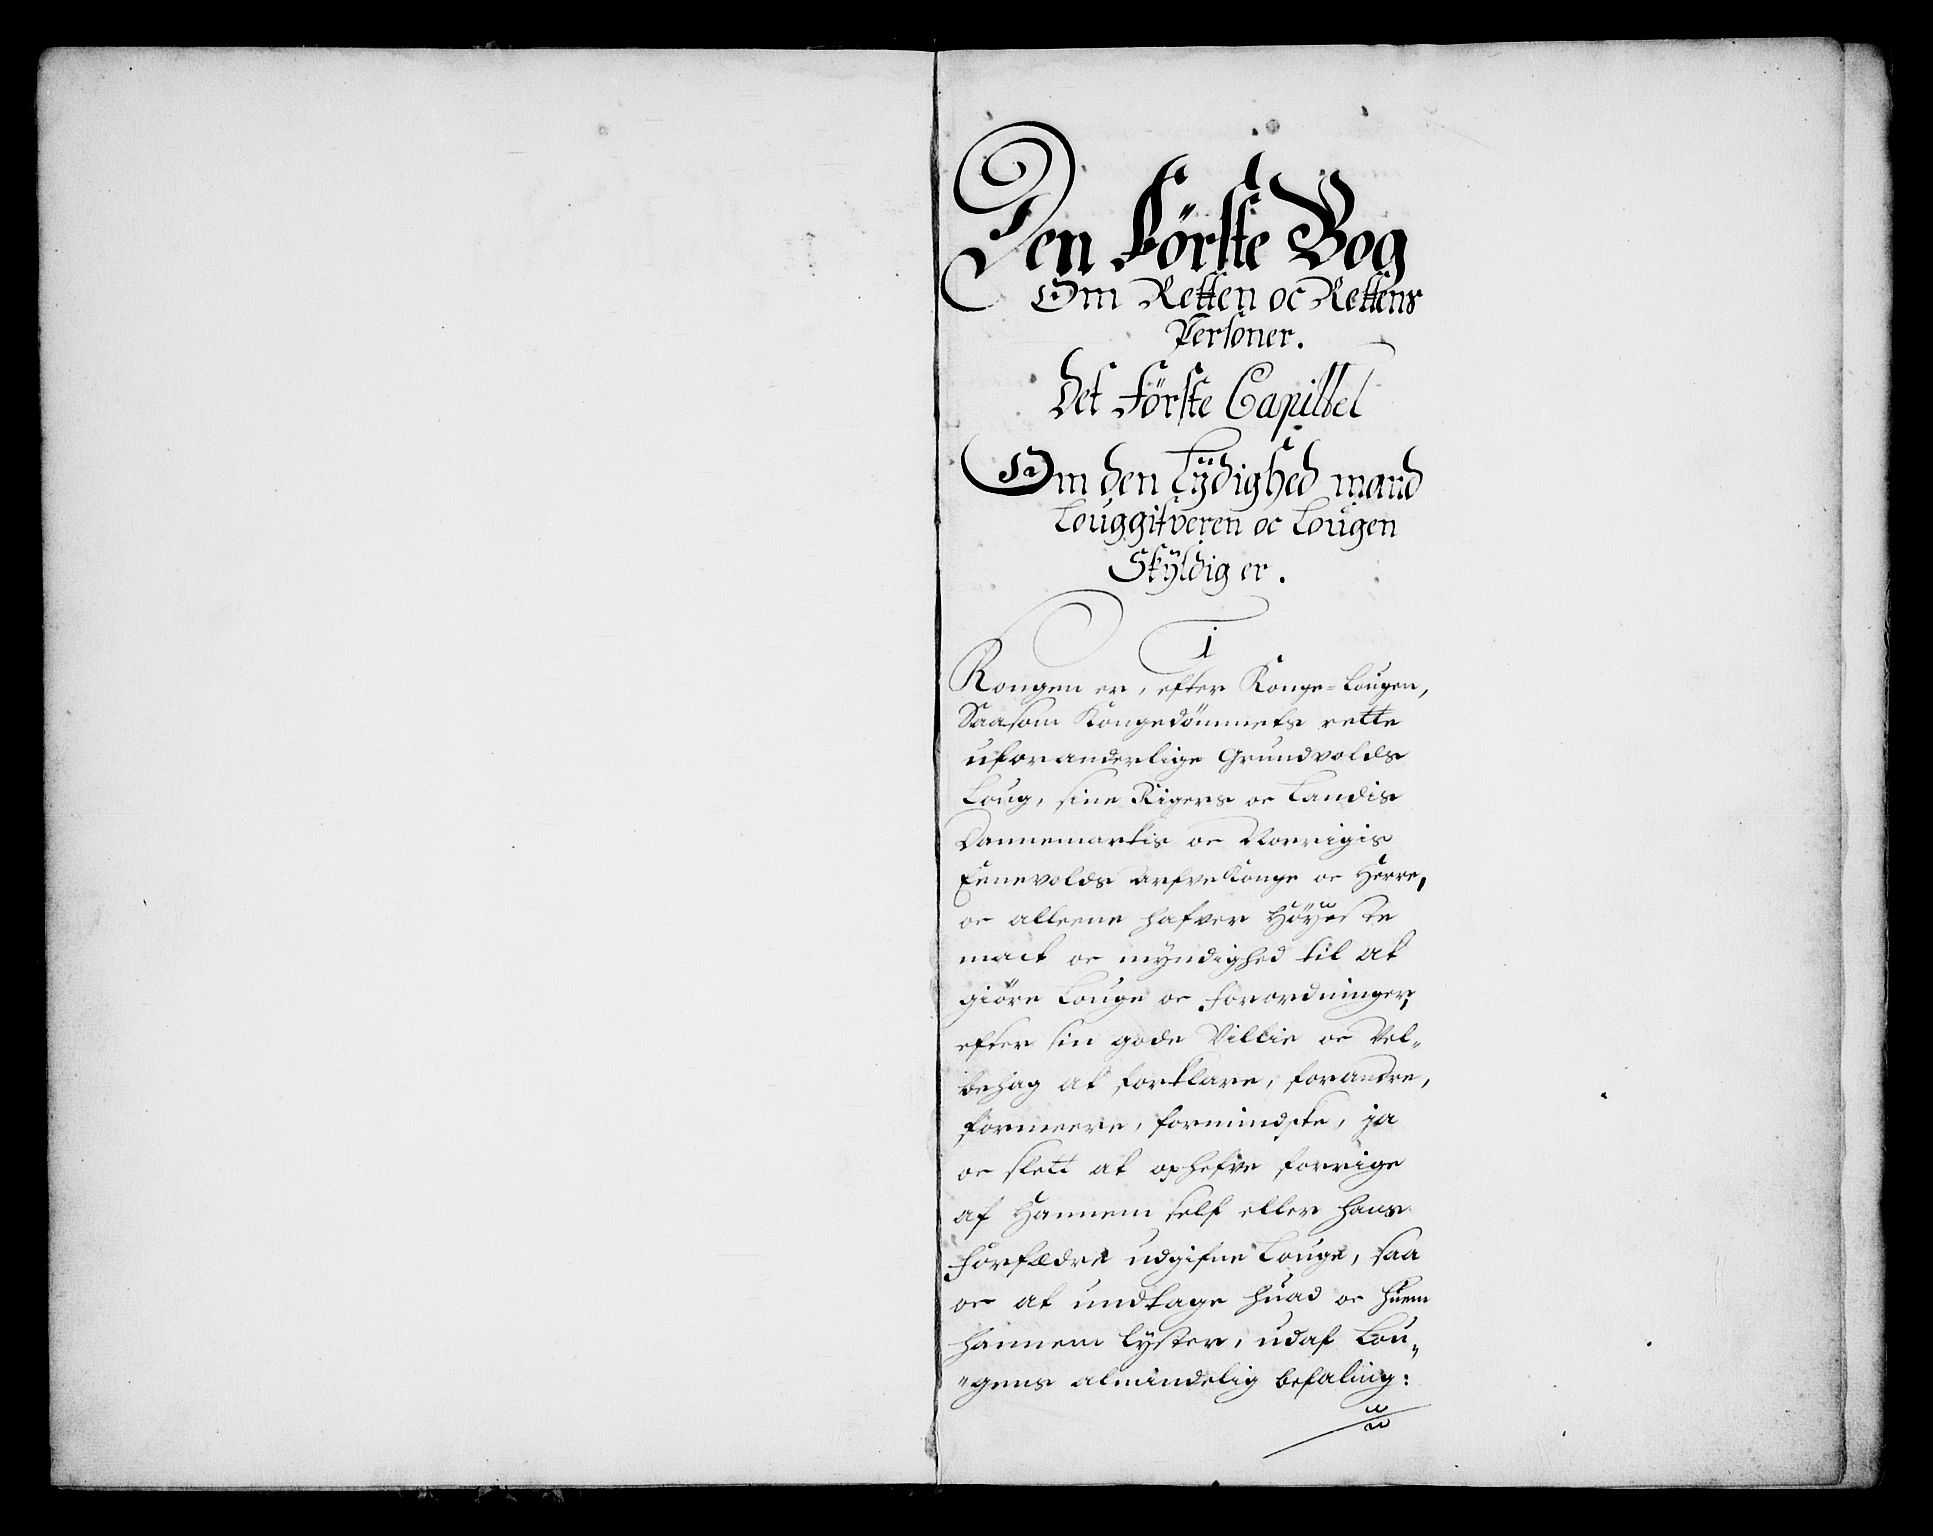 Den Förste Bog
Om Retten oc Rettens
Personer.
Det Förste Capittel
Om den Lÿdighed mand
Louggifveren oc Lougen
Skÿldig er.
1
Kongen er, efter Konge=Lougen,
Saasom Kongedömmets rette
uforanderlige Grundvolds
Loug, sine Rigers oc Landis
Dannemarkis oc Norrigis
Eenevolds ArfveKonge oc Herre,
oc alleene hafver Höÿeste
mact oc mÿndighed til at
giöre Louge oc Forordninger,
efter sin gode Villie oc Vel„
behag at forklare, forandre,
formeere, formindske, ja
oc slett at ophefve forrige
af Hannem self eller hans
Forfædre udgifne Louge, saa
oc at undtage huad oc huem
hannem lÿster, udaf Lou„
„gens almindelig befaling: